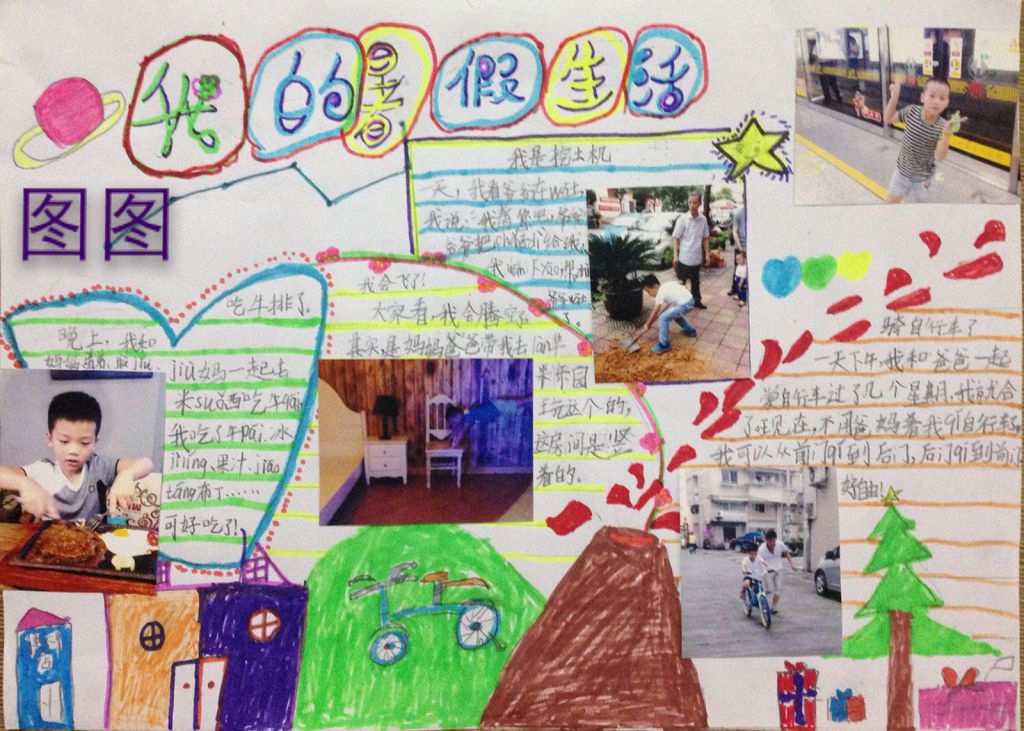 我的暑假生活
图图
我是挖土机
一天,我看爷爷在wā土,
我说:"我帮您吧,爷爷
爷爷把
我
我会飞了!
大家看,我会腾空了。
其实,是妈妈爸爸带我去
米乐园
玩这个的,
这房间是竖
着的。
吃牛排了
晚上,我和
妈妈
jiù妈一起去
米sù西吃牛pái,
我吃了牛pái、冰
jīlíng、果汁、jiāo
táng布丁……
可好吃了!
骑自行车了
一天下午,我和爸爸一起
学自行车过了几个星期,我就会
了。现在,不用爸妈看我qí自行车
我可以从前门qí到后门,后门qí到前门
好自由!